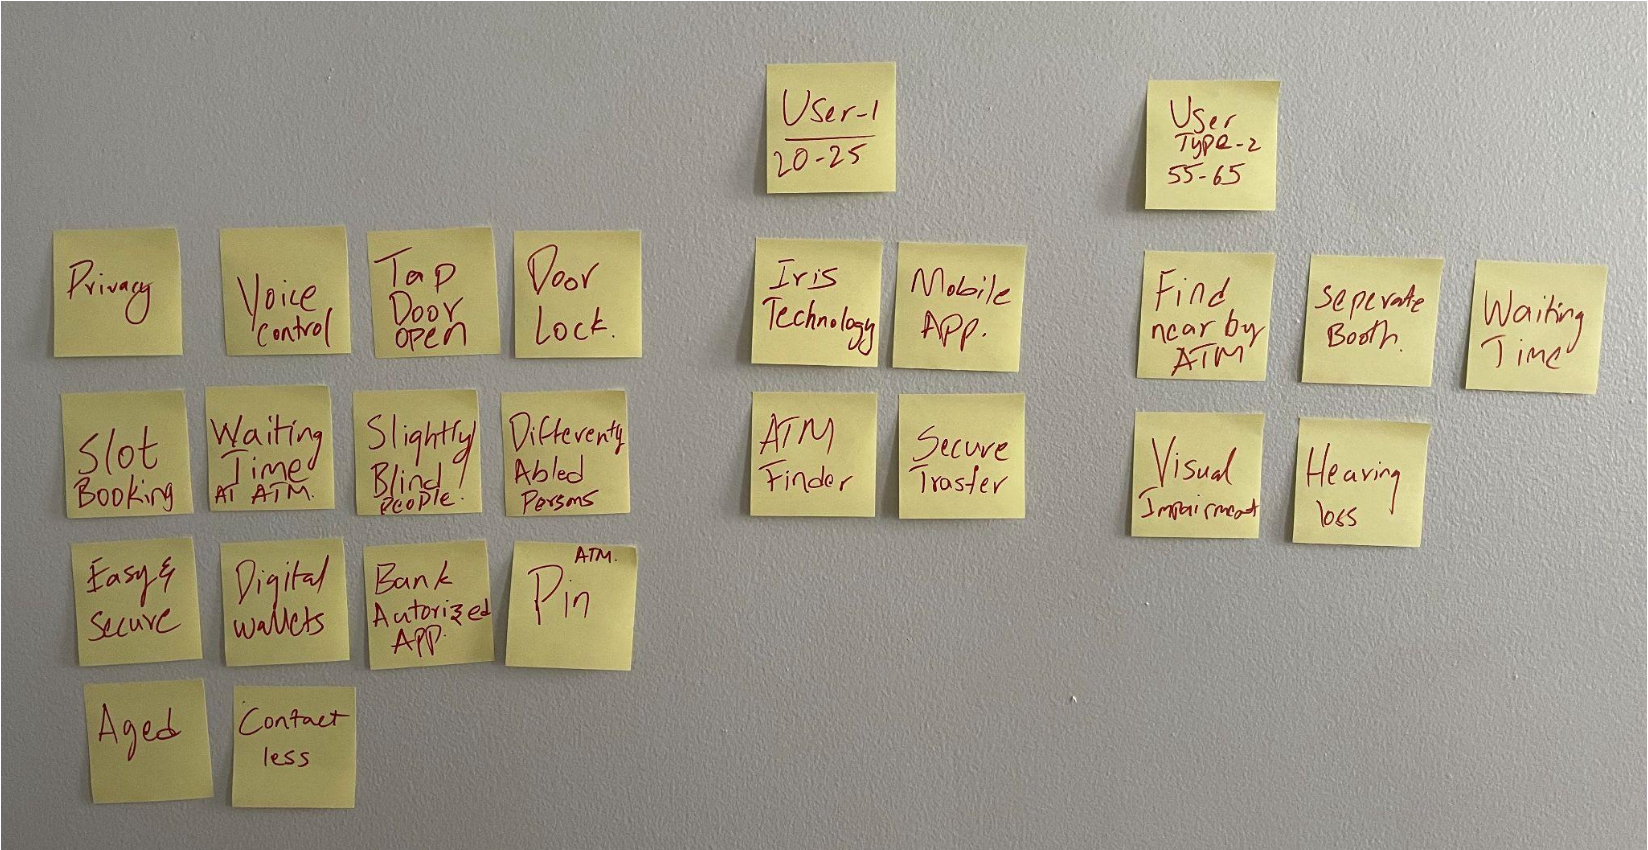 User-1
20-25
User
Type-2
55-65
Privacy
Voice
control
Tap
Door
open
Door
Lock.
Slot
Booking
Waiting
Time
AT ATM.
Slightly
Blind
people.
Differenty
Abled
Persons
Easy &
Secure
Digital
wallets
Bank
Autorized
APP.
ATM.
Pin
Aged
Contact
less
Iris
Technology
Mobile
APP.
ATM
Finder
Secure
Trasfer
Find
near by
ATM
Seperate
Booth.
Waiting
Time
Visual
Impairment
Hearing
loss